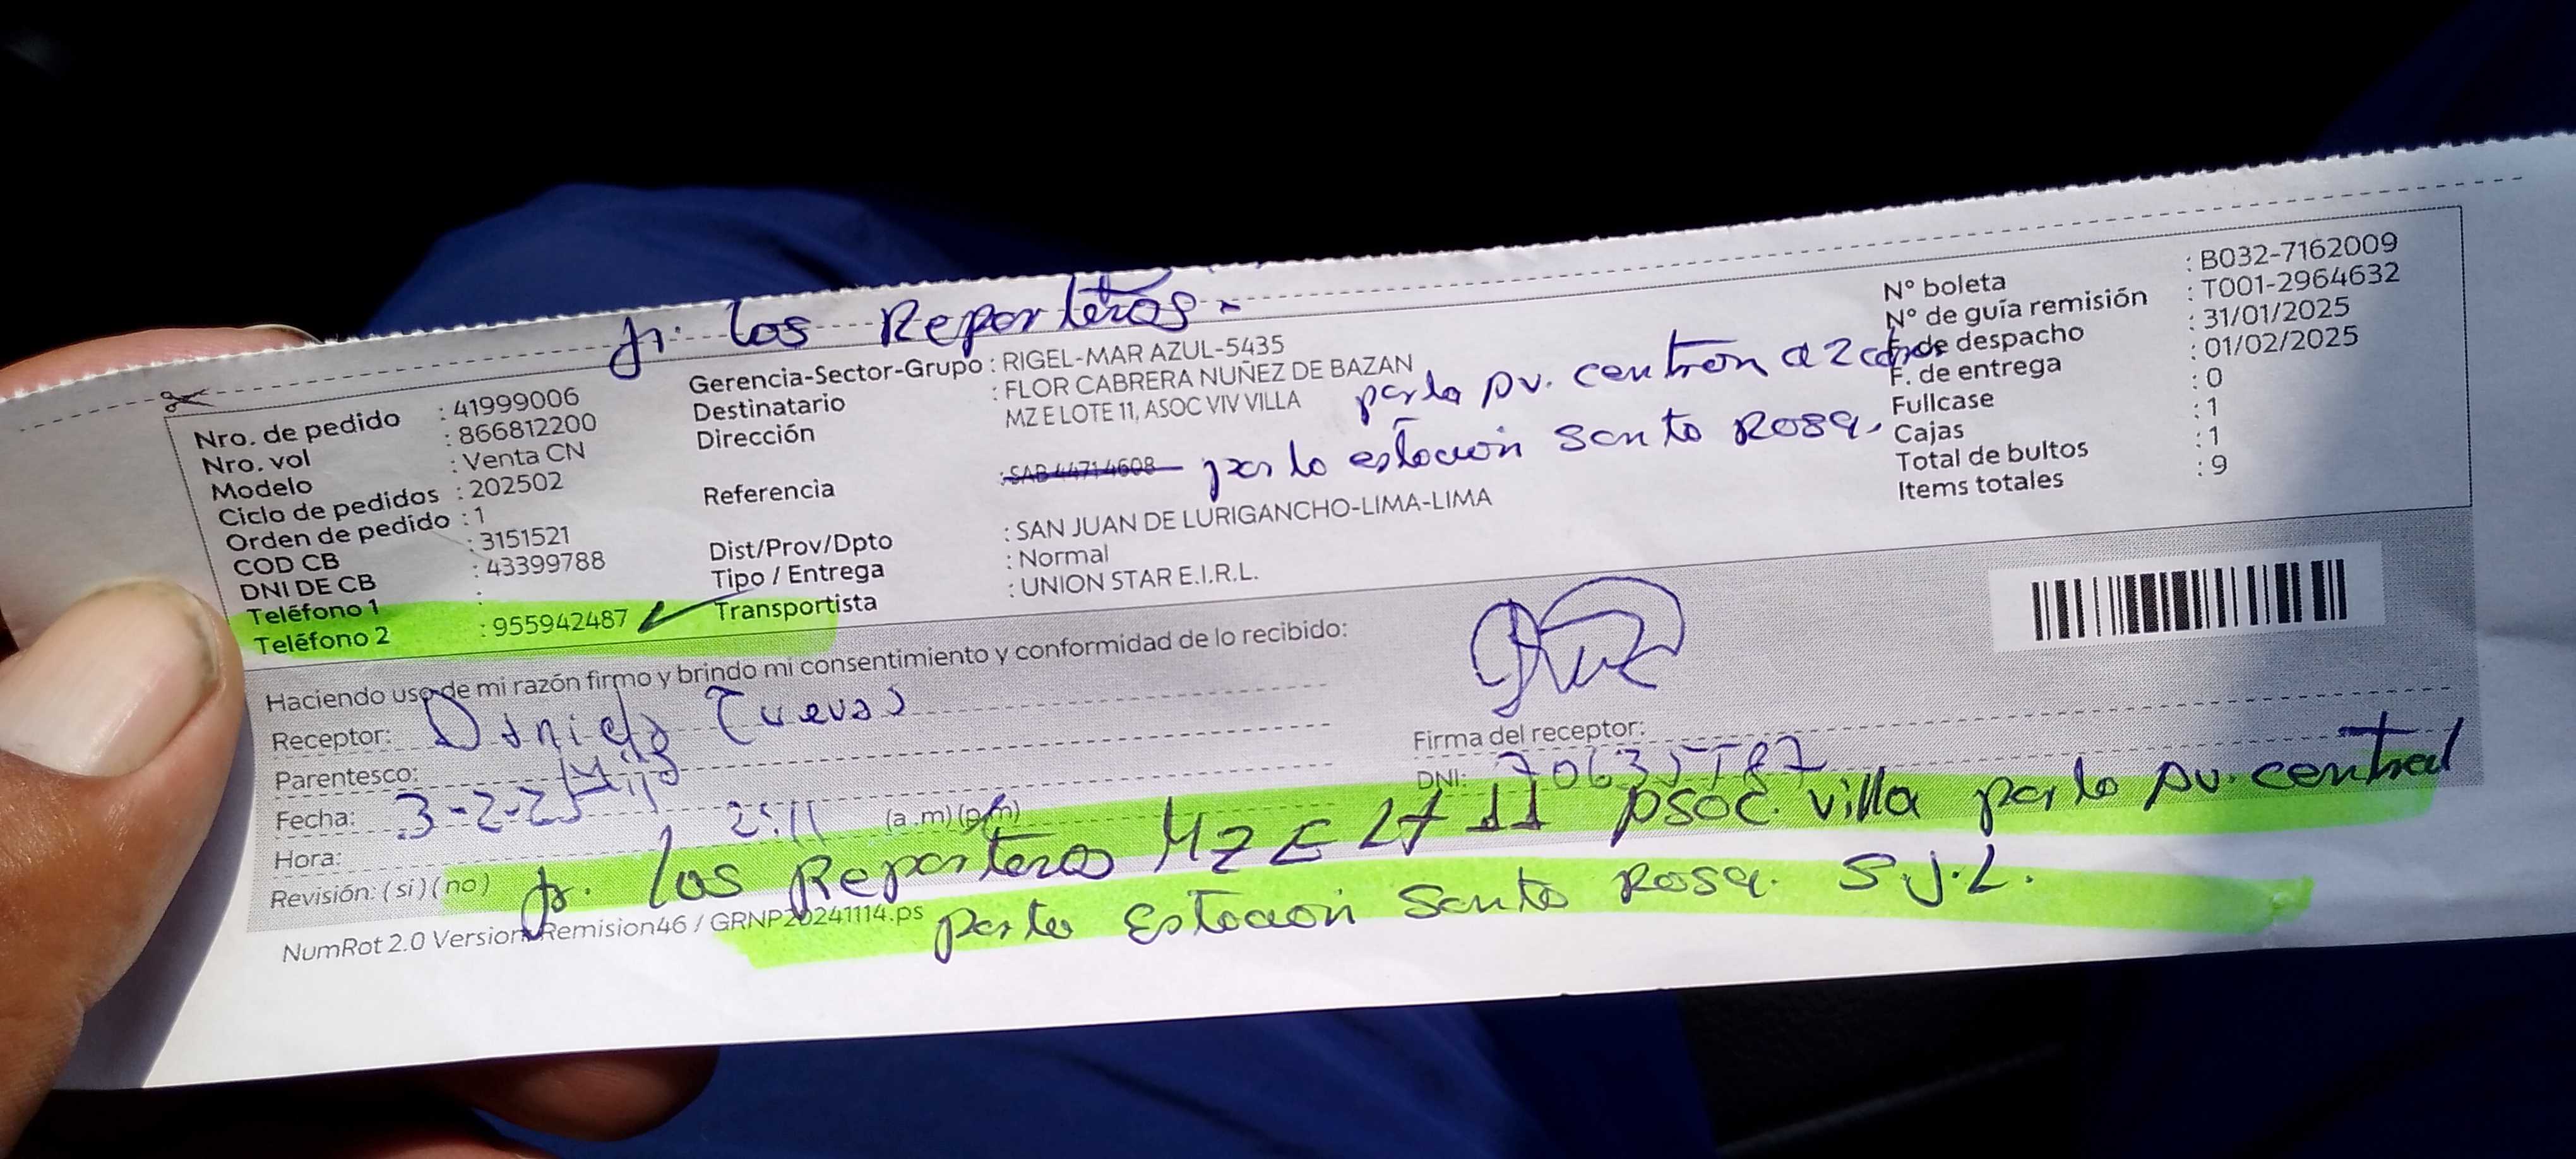 Jr. los Reporteros.
Nro. de pedido : 41999006
Nro. vol : 866812200
Modelo : Venta CN
Ciclo de pedidos : 202502
Orden de pedido : 1
COD CB : 3151521
DNI DE CB : 43399788
Teléfono 1 :
Teléfono 2 : 955942487
Gerencia-Sector-Grupo : RIGEL-MAR AZUL-5435
Destinatario : FLOR CABRERA NUÑEZ DE BAZAN
Dirección MZ E LOTE 11, ASOC VIV VILLA
por la pv. central
Referencia : SAB 44714608 por la estación Santa Rosa.
Dist/Prov/Dpto : SAN JUAN DE LURIGANCHO-LIMA-LIMA
Tipo / Entrega : Normal
Transportista : UNION STAR E.I.R.L.
N° boleta : B032-7162009
N° de guía remisión : T001-2964632
F. de despacho : 31/01/2025
F. de entrega : 01/02/2025
Fullcase : 0
Cajas : 1
Total de bultos : 1
Items totales : 9
Haciendo uso de mi razón firmo y brindo mi consentimiento y conformidad de lo recibido:
Receptor: Daniela Cuevas
Parentesco: Hija
Fecha: 3-2-25
Hora: 2:11 (a.m) (p.m)
Revisión: (si) (no)
Firma del receptor:
DNI:
Jr. los Reporteros MZ E LT 11 Asoc. villa por la Av. central
por la Estación Santa Rosa. S.J.L.
NumRot 2.0 Version Remision46 / GRNP20241114.ps